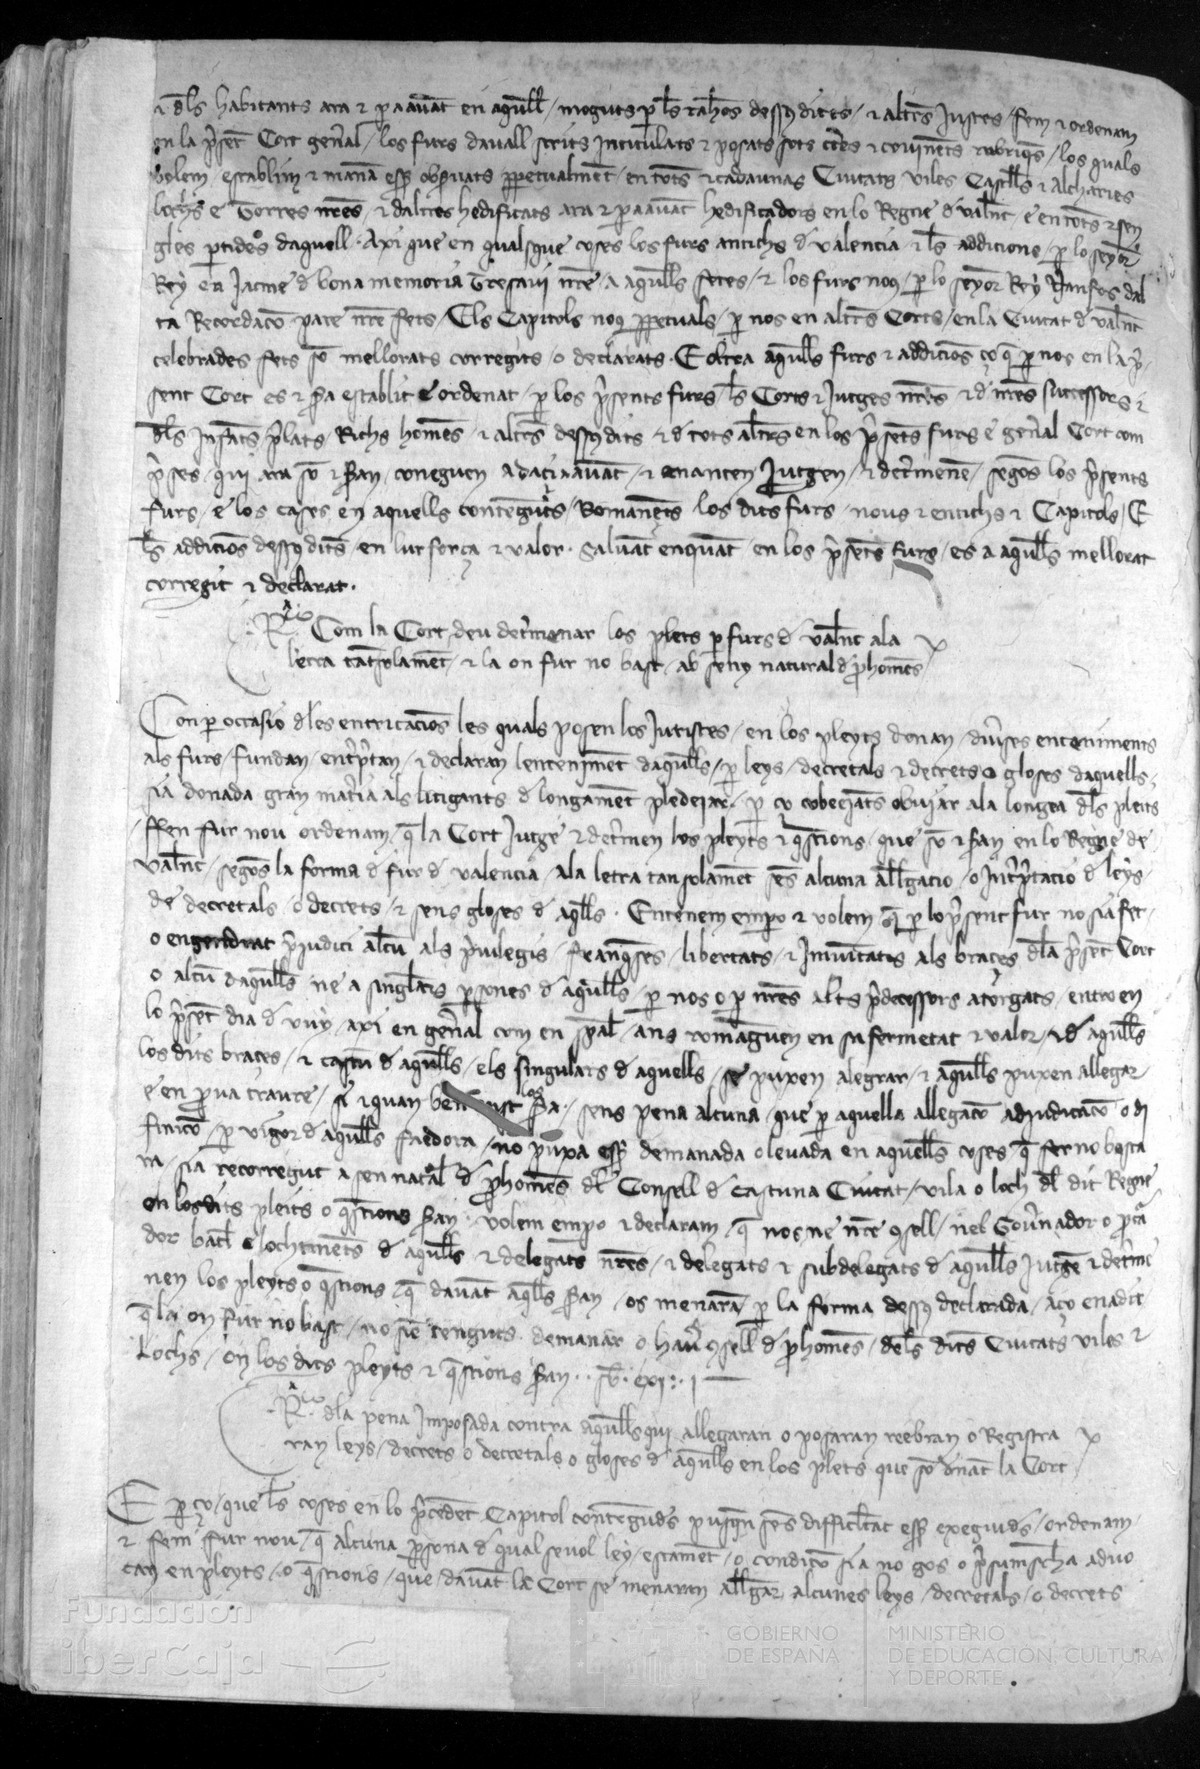 ⁊ dls habitants ara ⁊ p aauāt en aqull / moguts p ls rahōs dessꝯ dites / ⁊ altrs Justes / fem ⁊ ordenam
en la p̄set Cort genal / los furs davall scrits Intitulats ⁊ posats sots certs ⁊ covinēts rubriqs / los quals
volem establim ⁊ manā esser observats ppetualmēt / en tots ⁊ cadaunas Ciutats viles Castlls ⁊ Alcharies
lochs e Torres nrēs / ⁊ daltres hedificats ara ⁊ p aauāt hedificadors en lo Regne d valnt e en tots ⁊ sen
gles ptides daquell · Axi que en qualsque coses los furs antichs d valencia ⁊ ls addicions / p lo senyor
Rey en Jacme d bona memoria Tresavi nrē / a aqulls fetes / ⁊ los furs nous / p lo seyor Rey Namfos dal
ta Recordaco pare nrē fets / Els Capitols nous ppetuals / p nos en altrs Corts / en la Ciutat d valnt
celebrades fets so mellorats corregits / o declarats · E oltra aqulls furs ⁊ addicios ço q̄ p nos en la p̄
sent Cort es ⁊ sra establit e ordenat / p los p̄sents furs / ls Corts ⁊ Jutges nrēs ⁊ d nrēs successors ⁊
dls Infāts p̄lats Richs homēs / ⁊ altrs dessꝯ dits ⁊ d tots altrs en los p̄sets furs e genal Cort com
p̄ses / qui ara so ⁊ sran / coneguen adaci aauāt / ⁊ enanten Jutgen / ⁊ detmenē / segōs los p̄sents
furs / e los cases en aquells contēguts / Romanēts los dits furs / nous ⁊ entichs ⁊ Capitols / E
ls addicios dessꝯ dits / en lur força ⁊ valor · Salvāt enquāt / en los p̄sets furs / es a aqulls mellorat
corregit ⁊ declarat ·
Rca Com la Cort deu detmenar los plets p furs d valnt ala
letra tātsolamēt / ⁊ la on fur no bast / ab seny natural d prohomēs
Con p occasio dles entricacios les quals posen los Juristes / en los pleyts donan / divses enteniments
als furs / fundan / entp̄tan / ⁊ declaran lentenimēt daqulls / p leys / decretals ⁊ decrets o gloses daquells /
sia donada gran matia als litigants d longamēt pledejar / p ço cobejāts obviar ala longea dls pleits
ffen fur nou ordenam / q̄ la Cort Jutge ⁊ detmen los pleyts ⁊ q̄stions / que so ⁊ sran en lo Regne de
valnt / segōs la forma d fur d valencia / ala letra tansolamēt sēs alcuna allgacio / o intp̄tacio d leys /
de decretals / o decrets / ⁊ sens gloses d aqlls · Entenem empo ⁊ volem q̄ p lo p̄sent fur no sia fet /
o engendrat p̄judici alcu als p̄vilegis / franq̄ses / libertats / ⁊ Imunitats als braces dla p̄set Cort
o alcu daqulls ne a singlars psones d aqulls / p nos o p nrēs alts p̄decessors atorgats / entro en
lo p̄set dia d vuy / axi en genal com en spal / ans romāguen en sa fermetat ⁊ valor / ⁊ d aqulls
los dits braces / ⁊ cascu d aqulls / els singulars d aquells / se puxen alegrar / ⁊ aqulls puxen allegar /
e en prova traure / si ⁊ quan ben vist los sra / sens pena alcuna / que p aquella allegaco adjudicaco o di
finico / p vigor d aqulls faedora / no puxa esser demanada o levada en aquells coses q̄ fur no basta
ra / sia recorregut a sen natal d prohomēs dl Consell d cascuna Ciutat / vila o loch dl dit Regne
on los dits pleits o q̄stions sran / volem empo ⁊ declaram / q̄ nos ne nrē csell / nel Govnador o pcura
dor batl e lochtinēts d aqulls ⁊ delegats nrēs / ⁊ delegats ⁊ subdelegats d aqulls Jutgē ⁊ detme
nen los pleyts o q̄stions / q̄ davāt aqlls sran / os menarā / p la forma dessꝯ declarada / aço enadit /
q̄ la on fur no bast / no siē tenguts demanar o hauer csell d prohomēs / dels dits Ciutats viles ⁊
Lochs / on los dits pleyts ⁊ q̄stions sran · ·
Rca dla pena Imposada contra aqulls qui allegaran o posaran reebran o Registra
ran leys / decrets o decretals o gloses d aqulls en los plets que so dnāt la Cort
E p ço / que ls coses en lo p̄cedet Capitol contēgudes pusqn sēs difficltat esser exeguides / ordenam /
⁊ fem fur nou / q̄ alcuna psona d qual sevol ley / estamēt / o condico sia no gos o p̄sumscha advo
car en pleyts / o q̄stions / que davāt la Cort se menaran allgar alcunes leys / decretals / o decrets
Fundación
iberCaja
GOBIERNO
DE ESPAÑA
MINISTERIO
DE EDUCACIÓN, CULTURA
Y DEPORTE